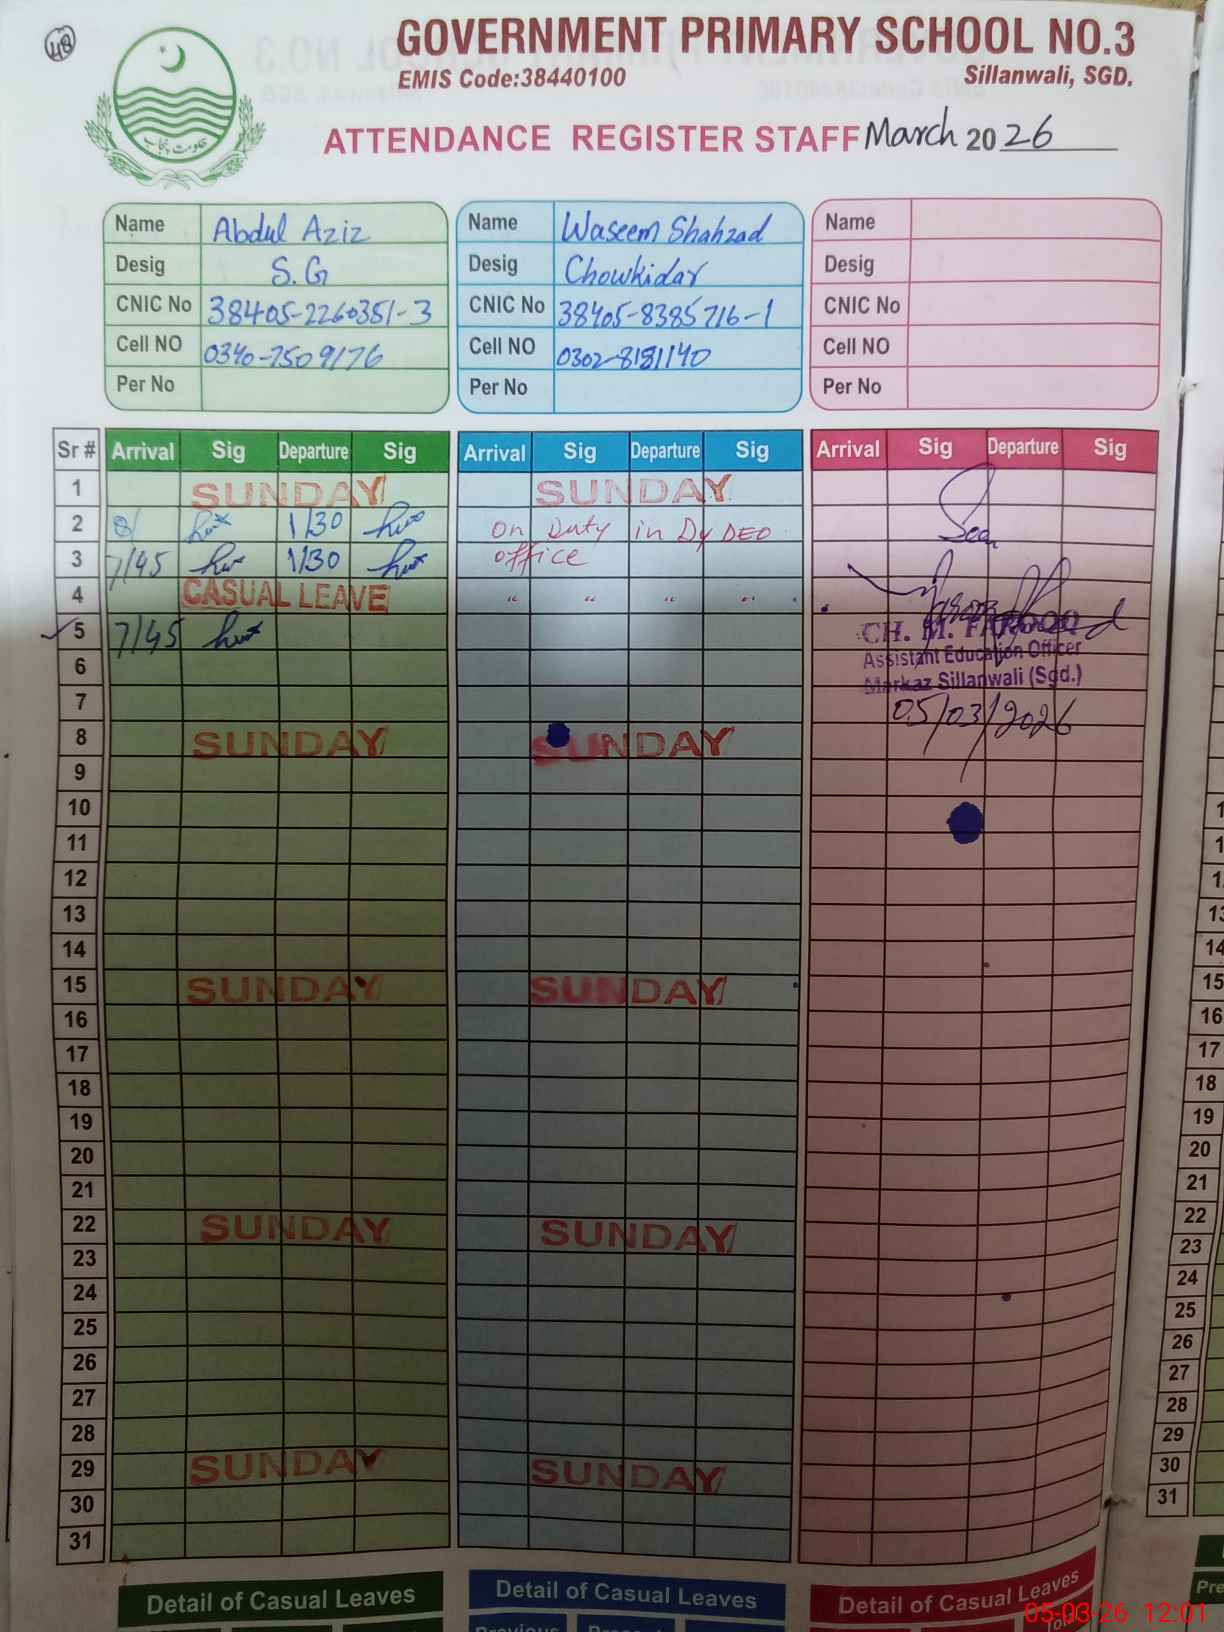 48
GOVERNMENT PRIMARY SCHOOL NO.3
EMIS Code:38440100 Sillanwali, SGD.
حکومت پنجاب
ATTENDANCE REGISTER STAFF March 2026
Name Abdul Aziz Name Waseem Shahzad Name
Desig S.G Desig Chowkidar Desig
CNIC No 38405-2260351-3 CNIC No 38405-8385716-1 CNIC No
Cell NO 0340-7509176 Cell NO 0302-8181140 Cell NO
Per No Per No Per No
Sr # Arrival Sig Departure Sig Arrival Sig Departure Sig Arrival Sig Departure Sig
1 SUNDAY SUNDAY
2 8/ 1/30 on Duty in Dy DEO Seen
3 7/45 1/30 office
4 CASUAL LEAVE " " " "
5 7/45 CH. M. FAROOQ
6 Assistant Education Officer
7 Markaz Sillanwali (Sgd.)
05/03/2026
8 SUNDAY SUNDAY
9
10
11
12
13
14
15 SUNDAY SUNDAY
16
17
18
19
20
21
22 SUNDAY SUNDAY
23
24
25
26
27
28
29 SUNDAY SUNDAY
30
31
Detail of Casual Leaves Detail of Casual Leaves Detail of Casual Leaves
Previous
14
15
16
17
18
19
20
21
22
23
24
25
26
27
28
29
30
31
05-03-26 12:01